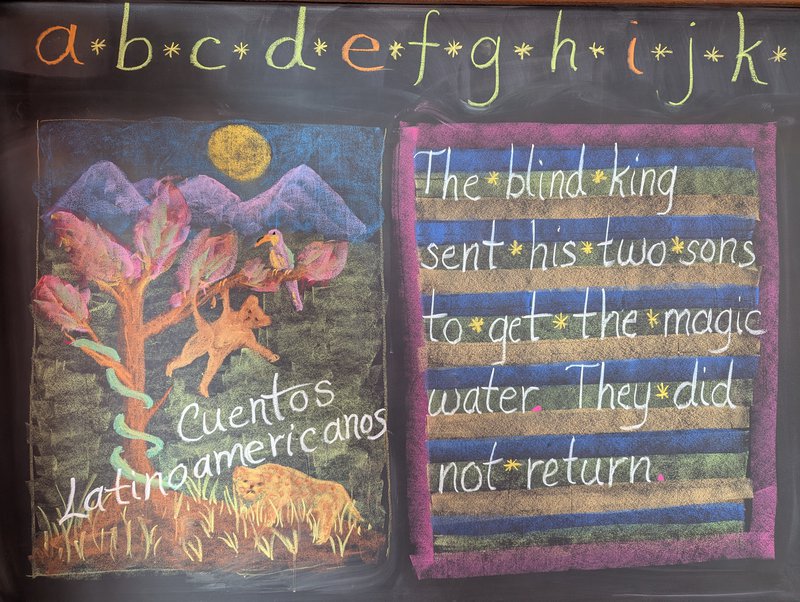 a * b * c * d * e * f * g * h * i * j * k *
Cuentos
Latinoamericanos
The * blind * king
sent * his * two * sons
to * get * the * magic
water. They * did
not * return.